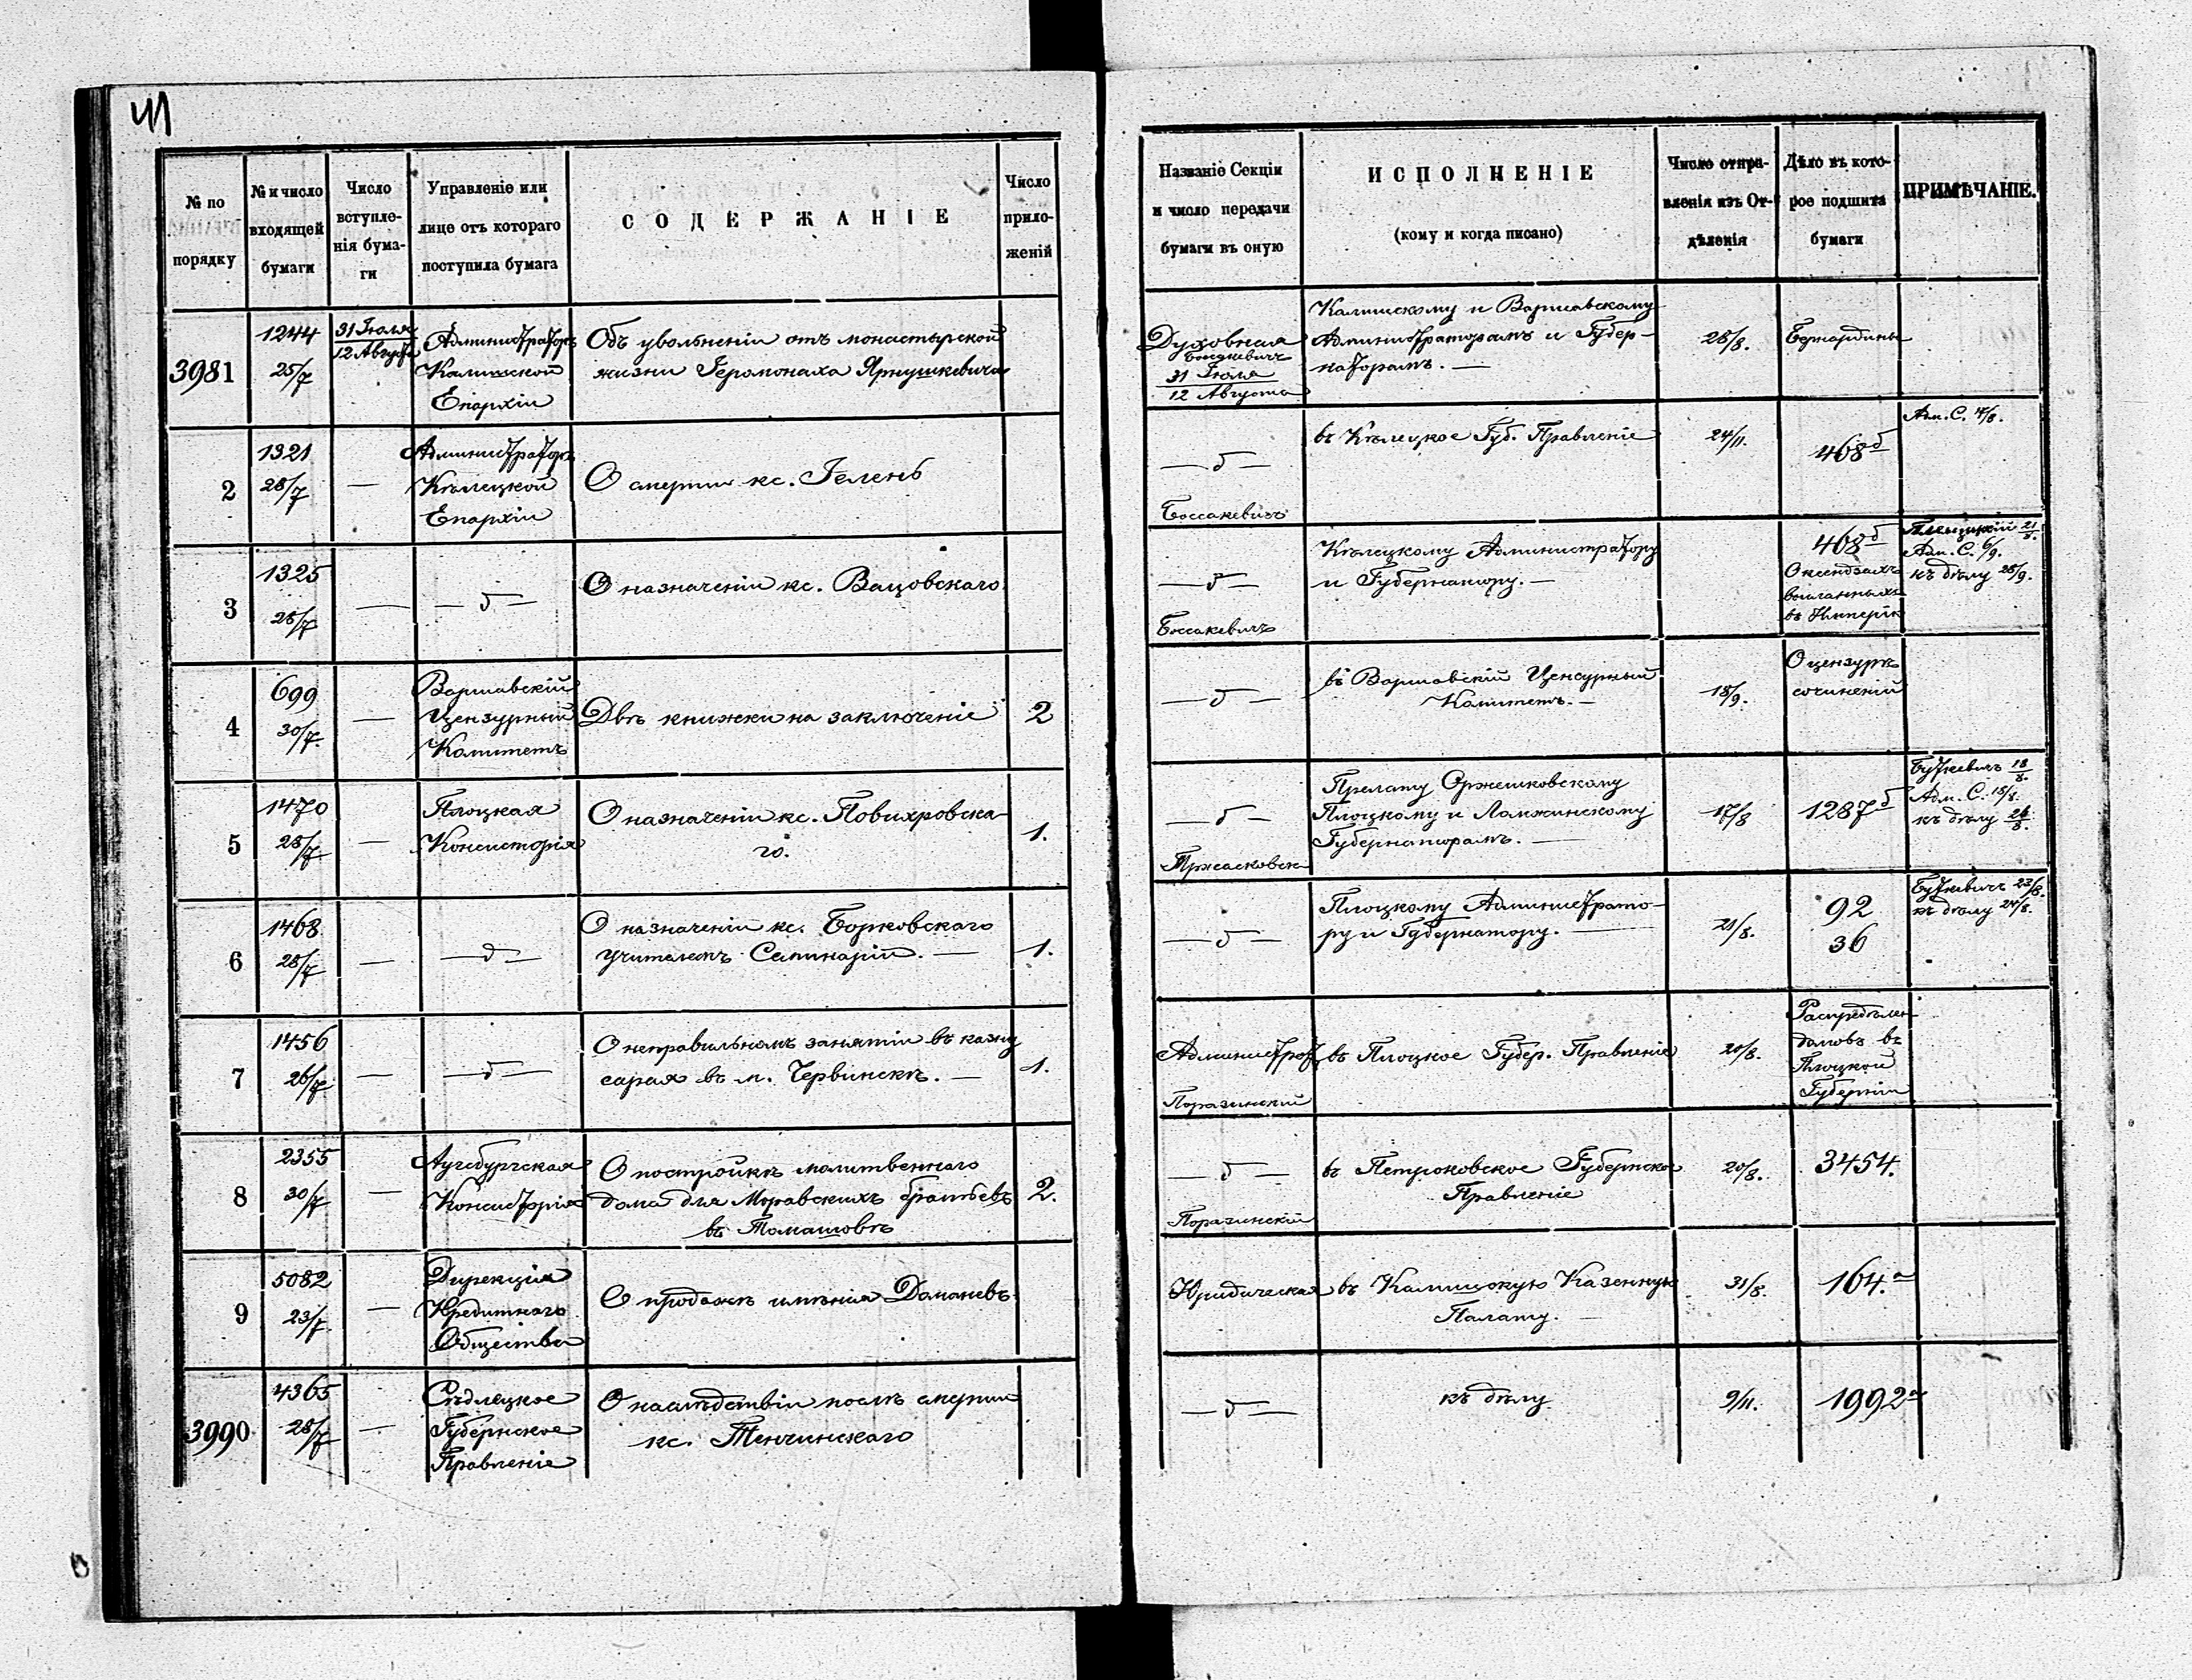 41
№ по
порядку
№ и число
входящей
бумаги
Число
вступле-
нія бума-
ги
Управленіе или
лице отъ котораго
поступила бумага
СОДЕРЖАНІЕ
Число
прило-
женій
Названіе Секціи
и число передачи
бумаги въ оную
ИСПОЛНЕНІЕ
(кому и когда писано)
Число отпра-
вленія изъ От-
дѣленія
Дѣло въ кото-
рое подшита
бумаги
ПРИМѢЧАНІЕ.
3981
1244
25/7
31 Іюля
12 Августа
Администраторъ
Калишской
Епархіи
Объ увольненіи отъ монастырской
жизни Іеромонаха Ярнушкевича
Духовная
31 Іюля
12 Августа
Калишскому и Варшавскому
Администраторамъ и Губер-
наторамъ. —
28/8.
Бернардины
2
1321
28/7
—
Администраторъ
Кѣлецкой
Епархіи
О смерти кс. Гелень
— б —
Боссакевичъ
въ Кѣлецкое Губ. Правленіе
24/11.
468 б
Адм. С. 4/8.
3
1325
28/7
—
— б —
О назначеніи кс. Вацовскаго
— б —
Боссакевичъ
Кѣлецкому Администратору
и Губернатору. —
468 б
О ксендзахъ
высланныхъ
въ Имперію
21/8.
Адм. С. 6/9.
къ дѣлу 28/9.
4
699
30/7.
—
Варшавскій
Цензурный
Комитетъ
Двѣ книжки на заключеніе
2
— б —
въ Варшавскій Ценсурный
Комитетъ. —
18/9.
О цензурѣ
сочиненій
5
1470
28/7
—
Плоцкая
Консисторія
О назначеніи кс. Повихровска-
го.
1.
— б —
Пржасковск
Прелату Оржешковскому
Плоцкому и Ломжинскому
Губернаторамъ. —
17/8
1287 б
Буткевичъ 18/8.
Адм. С. 18/8.
къ дѣлу 24/8.
6
1468
28/7
—
— д —
О назначеніи кс. Борковскаго
учителемъ Семинаріи. —
1.
— б —
Плоцкому Администрато-
ру и Губернатору. —
21/8.
92
36
Буткевичъ 23/8.
къ дѣлу 24/8.
7
1456
26/7
—
— б —
О неправильномъ занятіи въ казну
сарая въ м. Червинскѣ. —
1.
Администрат
Поразинскій
въ Плоцкое Губер. Правленіе
20/8.
Распредѣлен
домовъ въ
Плоцкой
Губерніи
8
2355
30/7
—
Аугсбургская
Консисторія
О постройкѣ молитвеннаго
дома для Моравскихъ братьевъ
въ Томашовѣ
2.
— б —
Поразинскій
въ Петроковское Губернское
Правленіе
20/8.
3454.
9
5082
23/7
—
Дирекція
Кредитнаго
Общества
О продажѣ имѣнія Доманевъ.
Юридическая
въ Калишскую Казенную
Палату. —
31/8.
164. а
3990
4365
28/7
—
Сѣдлецкое
Губернское
Правленіе
О наслѣдствіи послѣ смерти
кс. Тенчинскаго
— б —
къ дѣлу
9/11.
1992 а